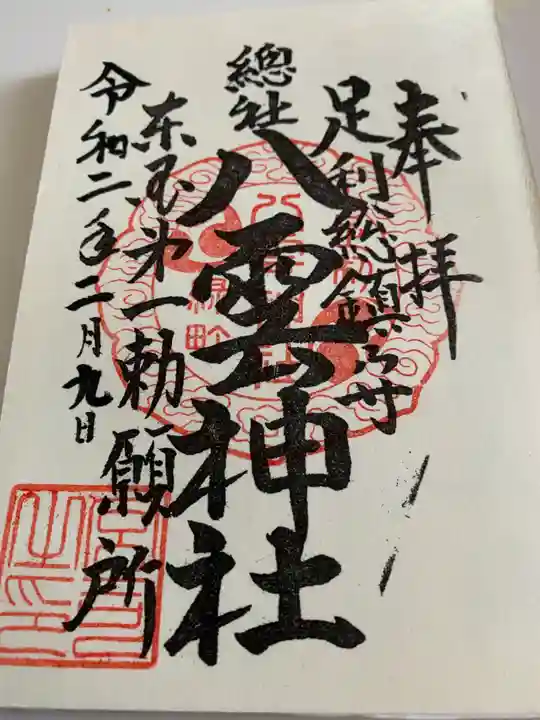 奉拝
足利総鎮守
總社
八雲神社
東国第一勅願所
令和二年二月九日
緑町